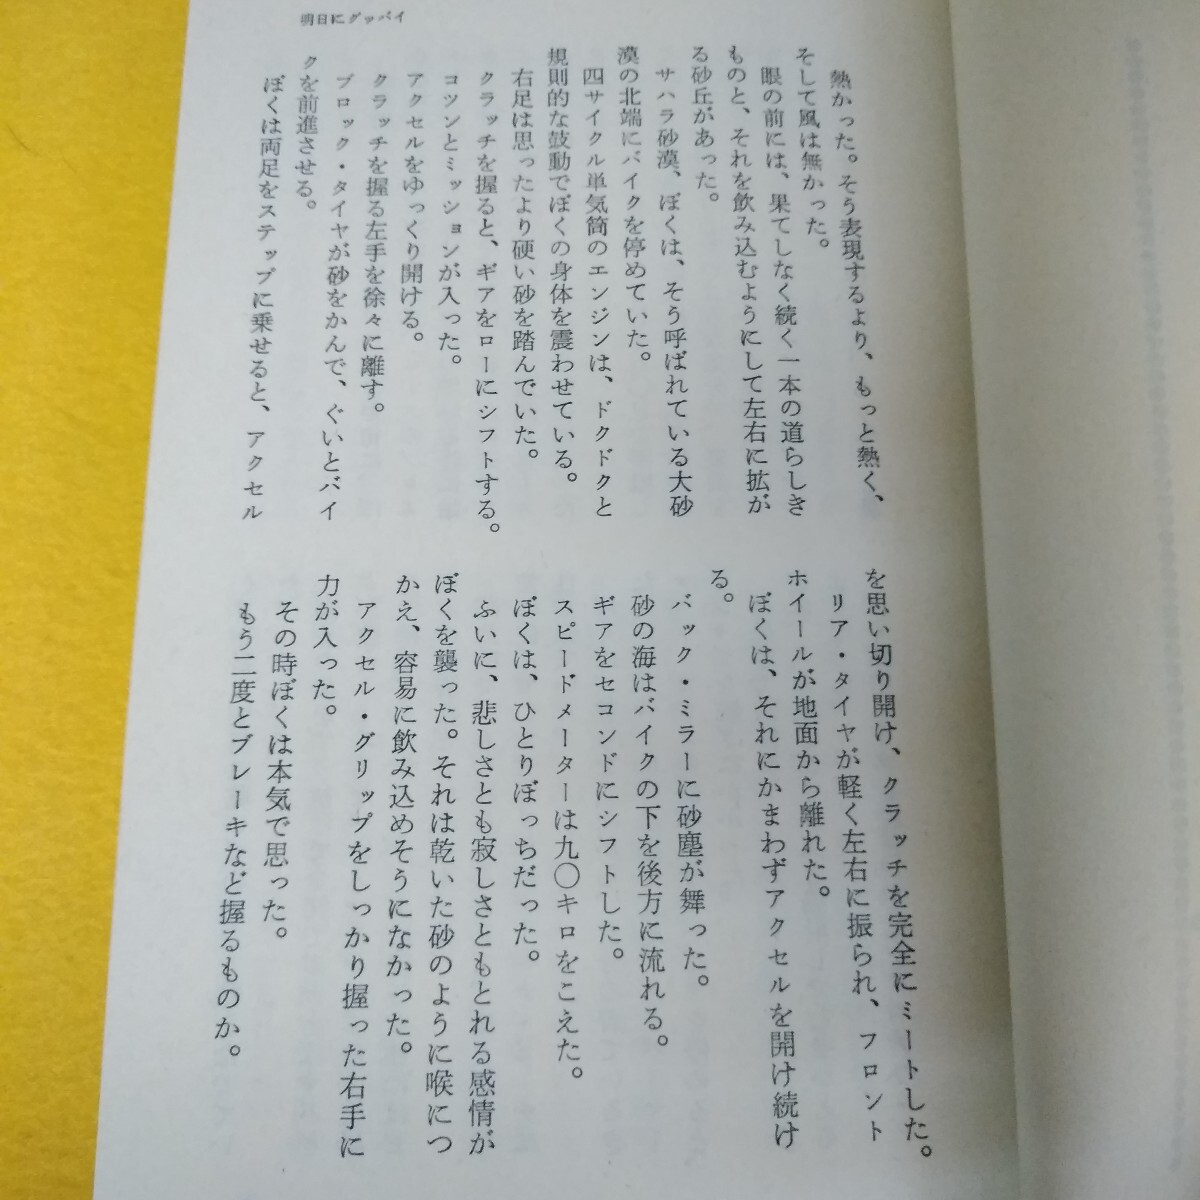 明日にグッバイ
熱かった。そう表現するより、もっと熱く、
そして風は無かった。
眼の前には、果てしなく続く一本の道らしき
ものと、それを飲み込むようにして左右に拡が
る砂丘があった。
サハラ砂漠、ぼくは、そう呼ばれている大砂
漠の北端にバイクを停めていた。
四サイクル単気筒のエンジンは、ドクドクと
規則的な鼓動でぼくの身体を震わせている。
右足は思ったより硬い砂を踏んでいた。
クラッチを握ると、ギアをローにシフトする。
コツンとミッションが入った。
アクセルをゆっくり開ける。
クラッチを握る左手を徐々に離す。
ブロック・タイヤが砂をかんで、ぐいとバイ
クを前進させる。
ぼくは両足をステップに乗せると、アクセル
を思い切り開け、クラッチを完全にミートした。
リア・タイヤが軽く左右に振られ、フロント
ホイールが地面から離れた。
ぼくは、それにかまわずアクセルを開け続け
る。
バック・ミラーに砂塵が舞った。
砂の海はバイクの下を後方に流れる。
ギアをセコンドにシフトした。
スピードメーターは九〇キロをこえた。
ぼくは、ひとりぼっちだった。
ふいに、悲しさとも寂しさともとれる感情が
ぼくを襲った。それは乾いた砂のように喉につ
かえ、容易に飲み込めそうになかった。
アクセル・グリップをしっかり握った右手に
力が入った。
その時ぼくは本気で思った。
もう二度とブレーキなど握るものか。